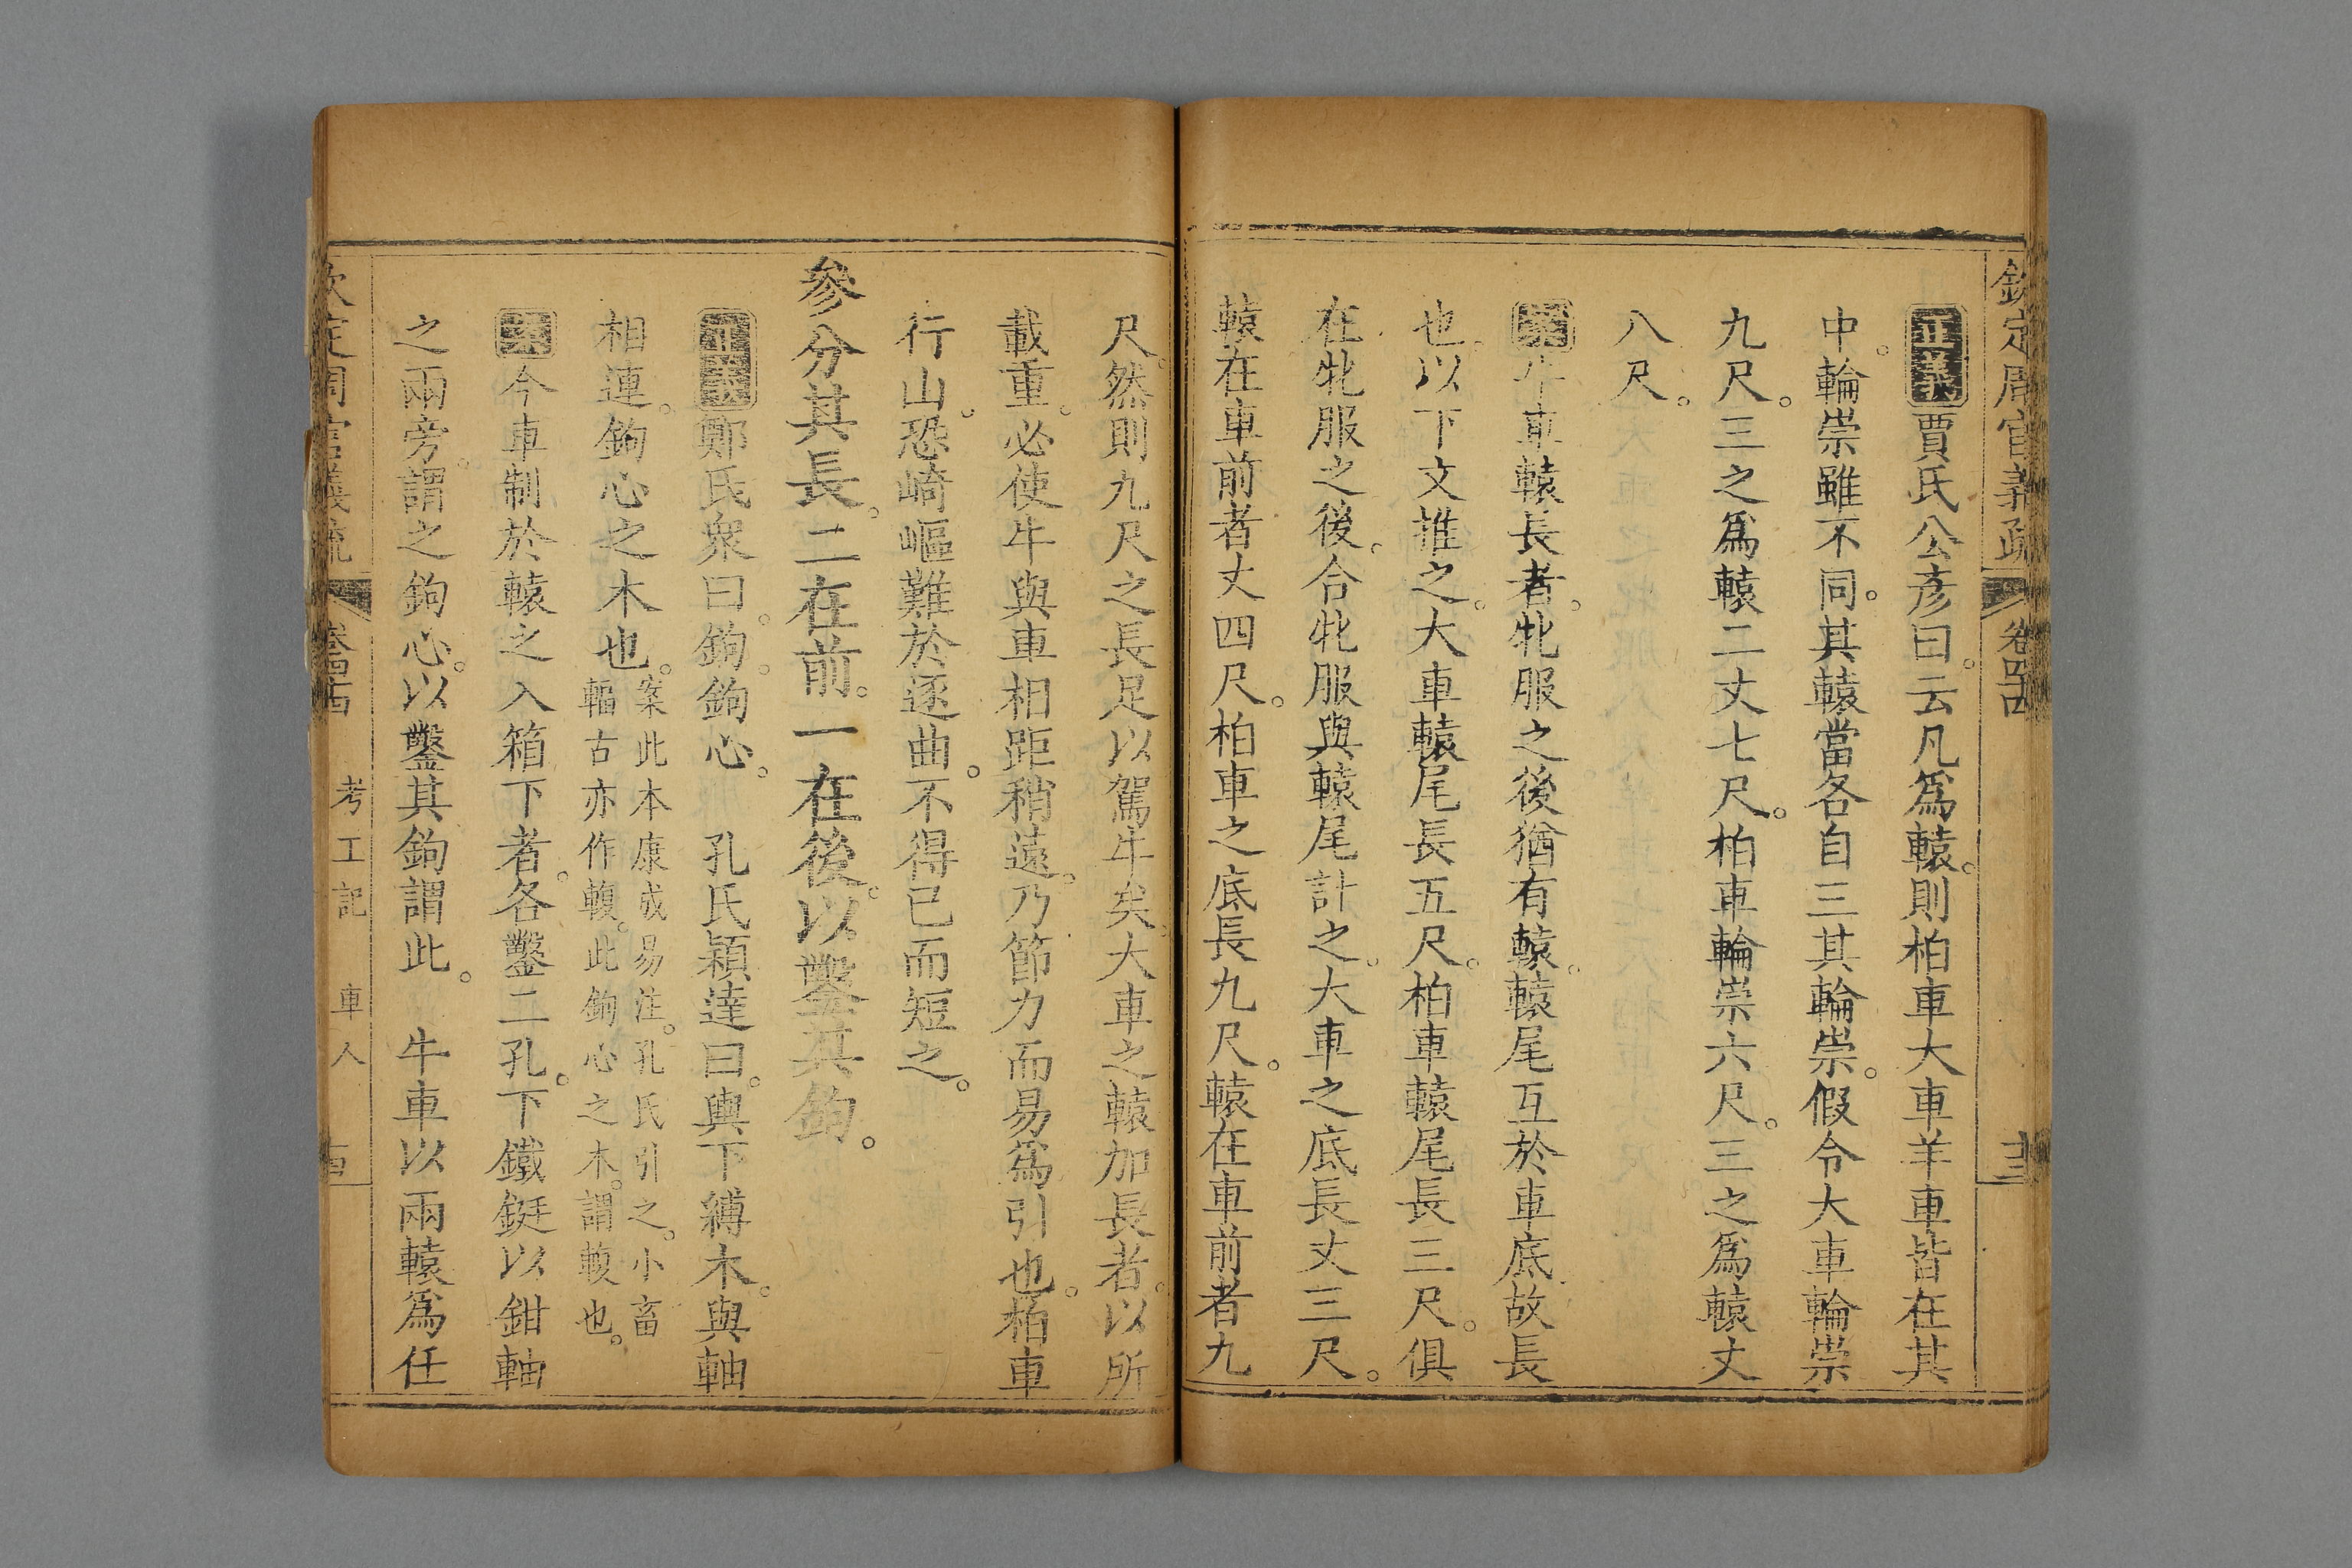 欽定周官義疏 卷四十四
正義賈氏公彥曰。云凡爲轅。則柏車大車羊車皆在其
中。輪崇雖不同。其轅當各自三其輪崇。假令大車輪崇
九尺。三之爲轅二丈七尺。柏車輪崇六尺。三之爲轅丈
八尺。
案牛車轅長者。牝服之後猶有轅。轅尾互於車底故長
也。以下文推之。大車轅尾長五尺。柏車轅尾長三尺。俱
在牝服之後。合牝服與轅尾計之。大車之底長丈三尺。
轅在車前者丈四尺。柏車之底長九尺。轅在車前者九
尺。然則九尺之長足以駕牛矣。大車之轅加長者。以所
載重。必使牛與車相距稍遠。乃節力而易爲引也。柏車
行山。恐崎嶇難於逐曲。不得已而短之。
參分其長。二在前。一在後。以鑿其鉤。
正義鄭氏衆曰。鉤。鉤心。 孔氏穎達曰。輿下縛木。與軸
相連。鉤心之木也。案此本康成易注。孔氏引之。小畜
輻古亦作輹。此鉤心之木。謂輹也。
案今車制於轅之入箱下者。各鑿二孔。下鐵鋌以鉗軸
之兩旁。謂之鉤心。以鑿其鉤謂此。 牛車以兩轅爲任
欽定周官義疏 卷四十四 考工記 車人